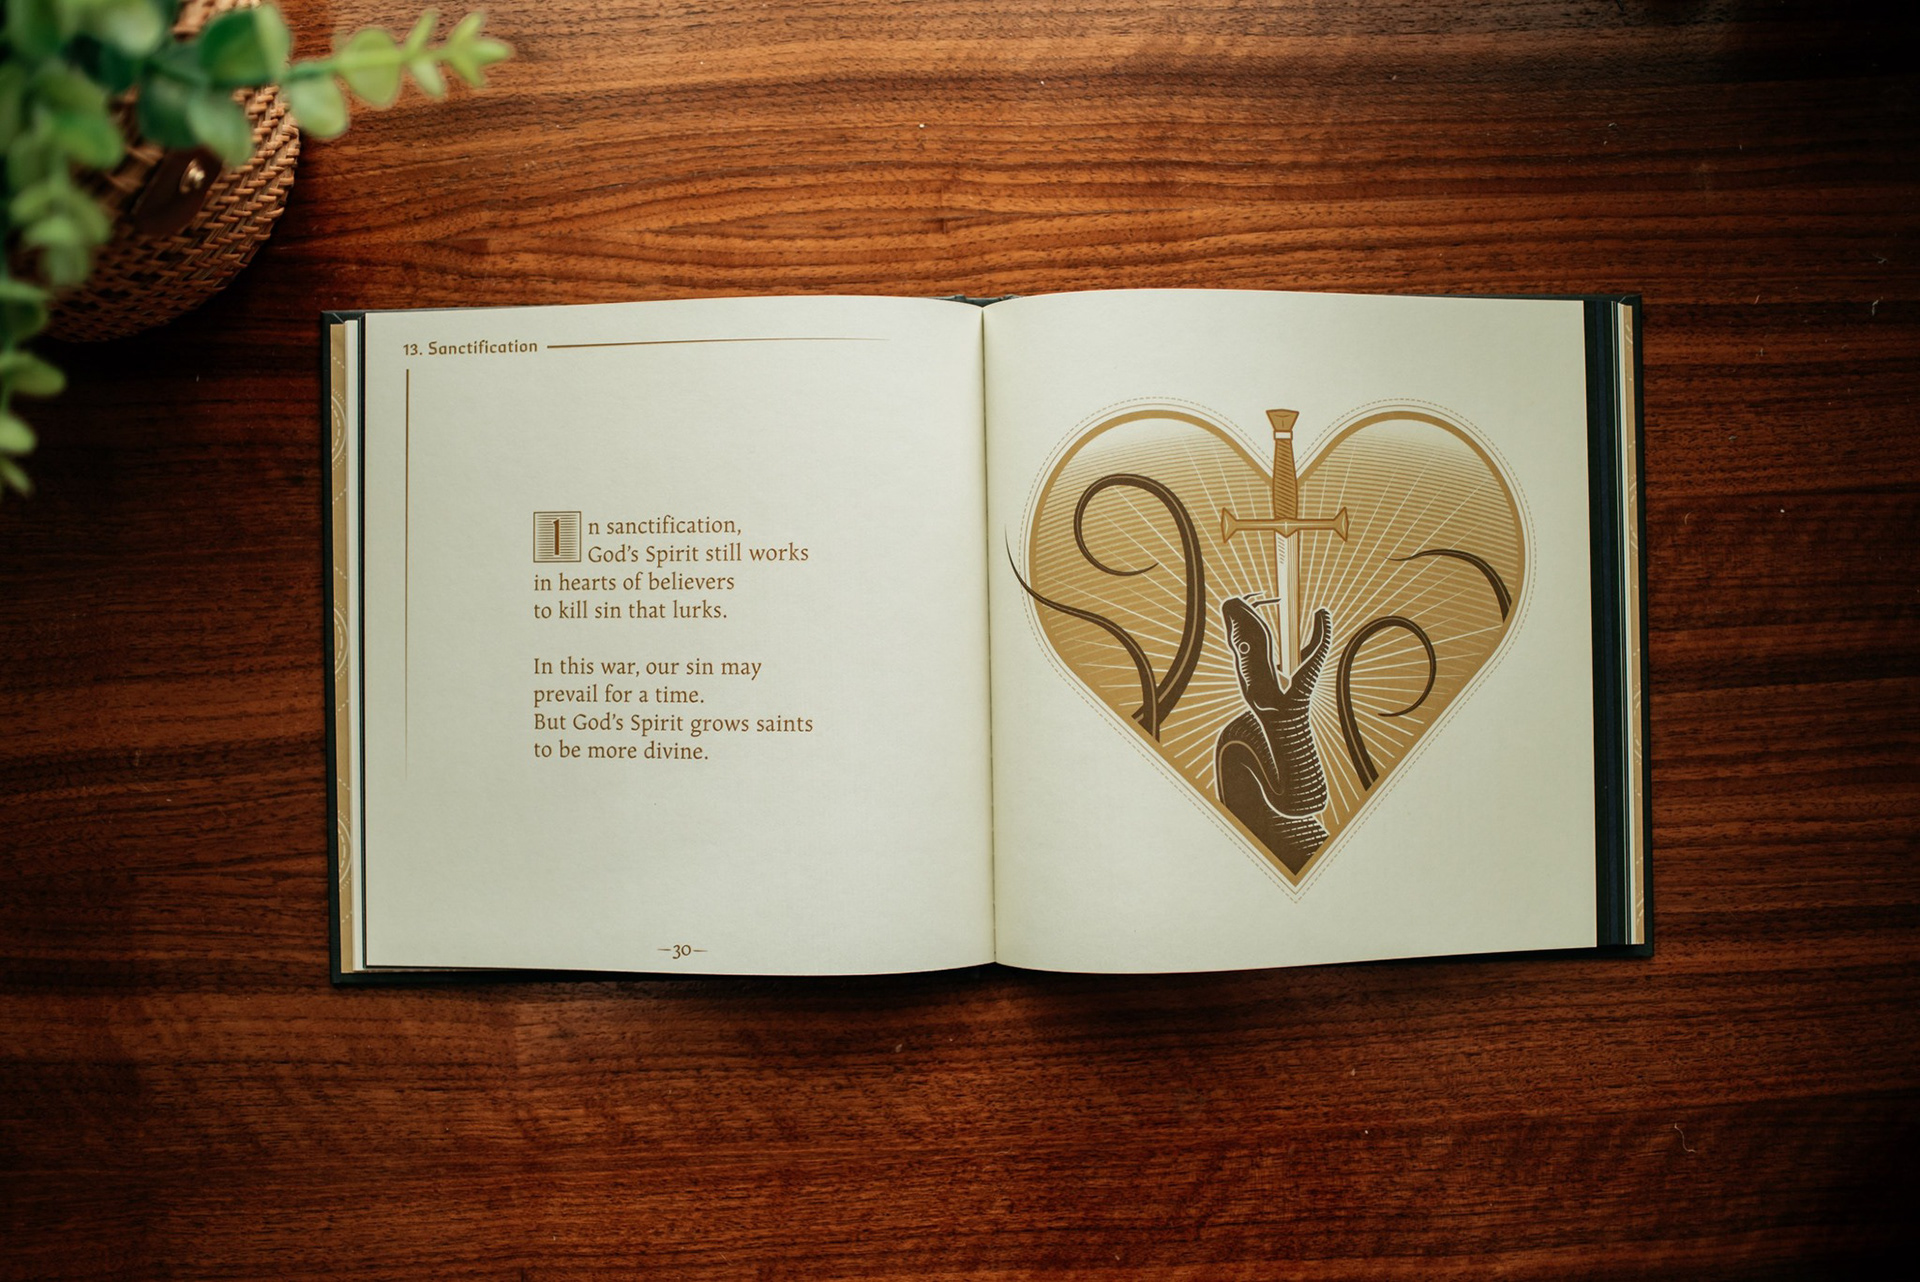 13. Sanctification
In sanctification,
God's Spirit still works
in hearts of believers
to kill sin that lurks.
In this war, our sin may
prevail for a time.
But God's Spirit grows saints
to be more divine.
—30—